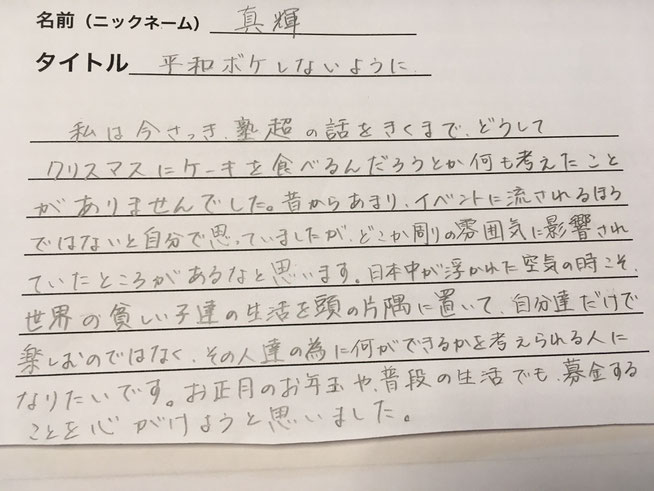 名前（ニックネーム） 真輝
タイトル 平和ボケしないように
私は今さっき、塾超の話をきくまで、どうして
クリスマスにケーキを食べるんだろうとか何も考えたこと
がありませんでした。昔からあまり、イベントに流されるほう
ではないと自分で思っていましたが、どこか周りの雰囲気に影響され
ていたところがあるなと思います。日本中が浮かれた空気の時こそ、
世界の貧しい子達の生活を頭の片隅に置いて、自分達だけで
楽しむのではなく、その人達の為に何ができるかを考えられる人に
なりたいです。お正月のお年玉や、普段の生活でも、募金する
ことを心がけようと思いました。